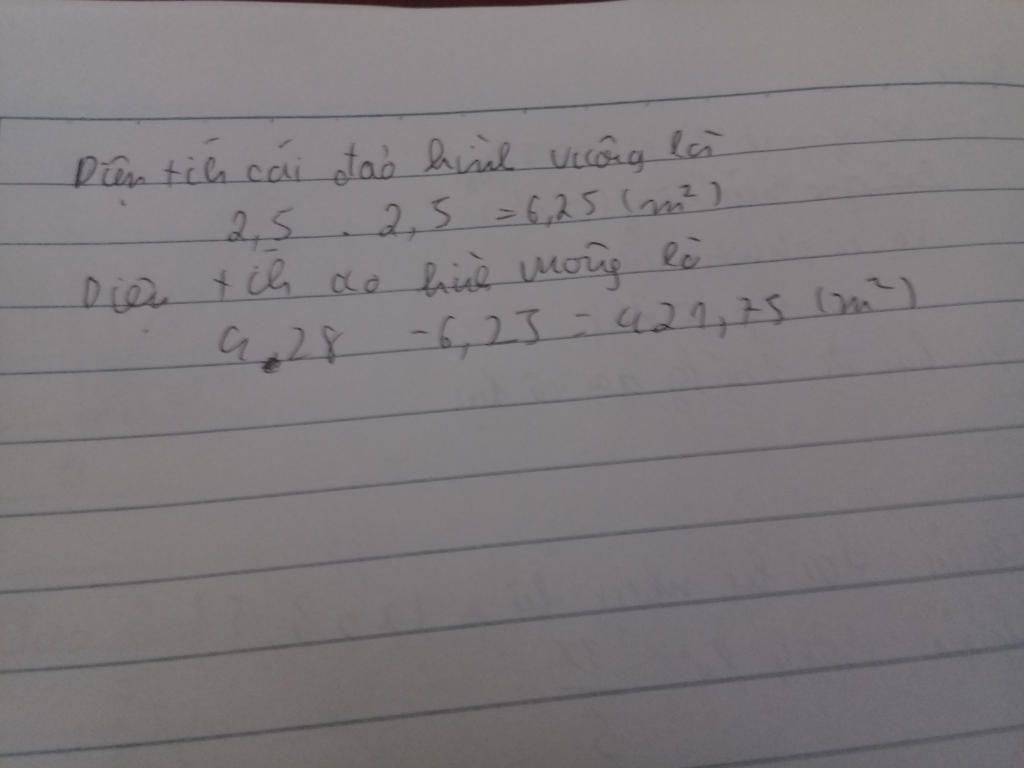 Diện tích cái đaỏ hình vuông là
2,5 . 2,5 = 6,25 (m²)
Diện tích ao hình vuông là
4.28 - 6,25 = 421,75 (m²)